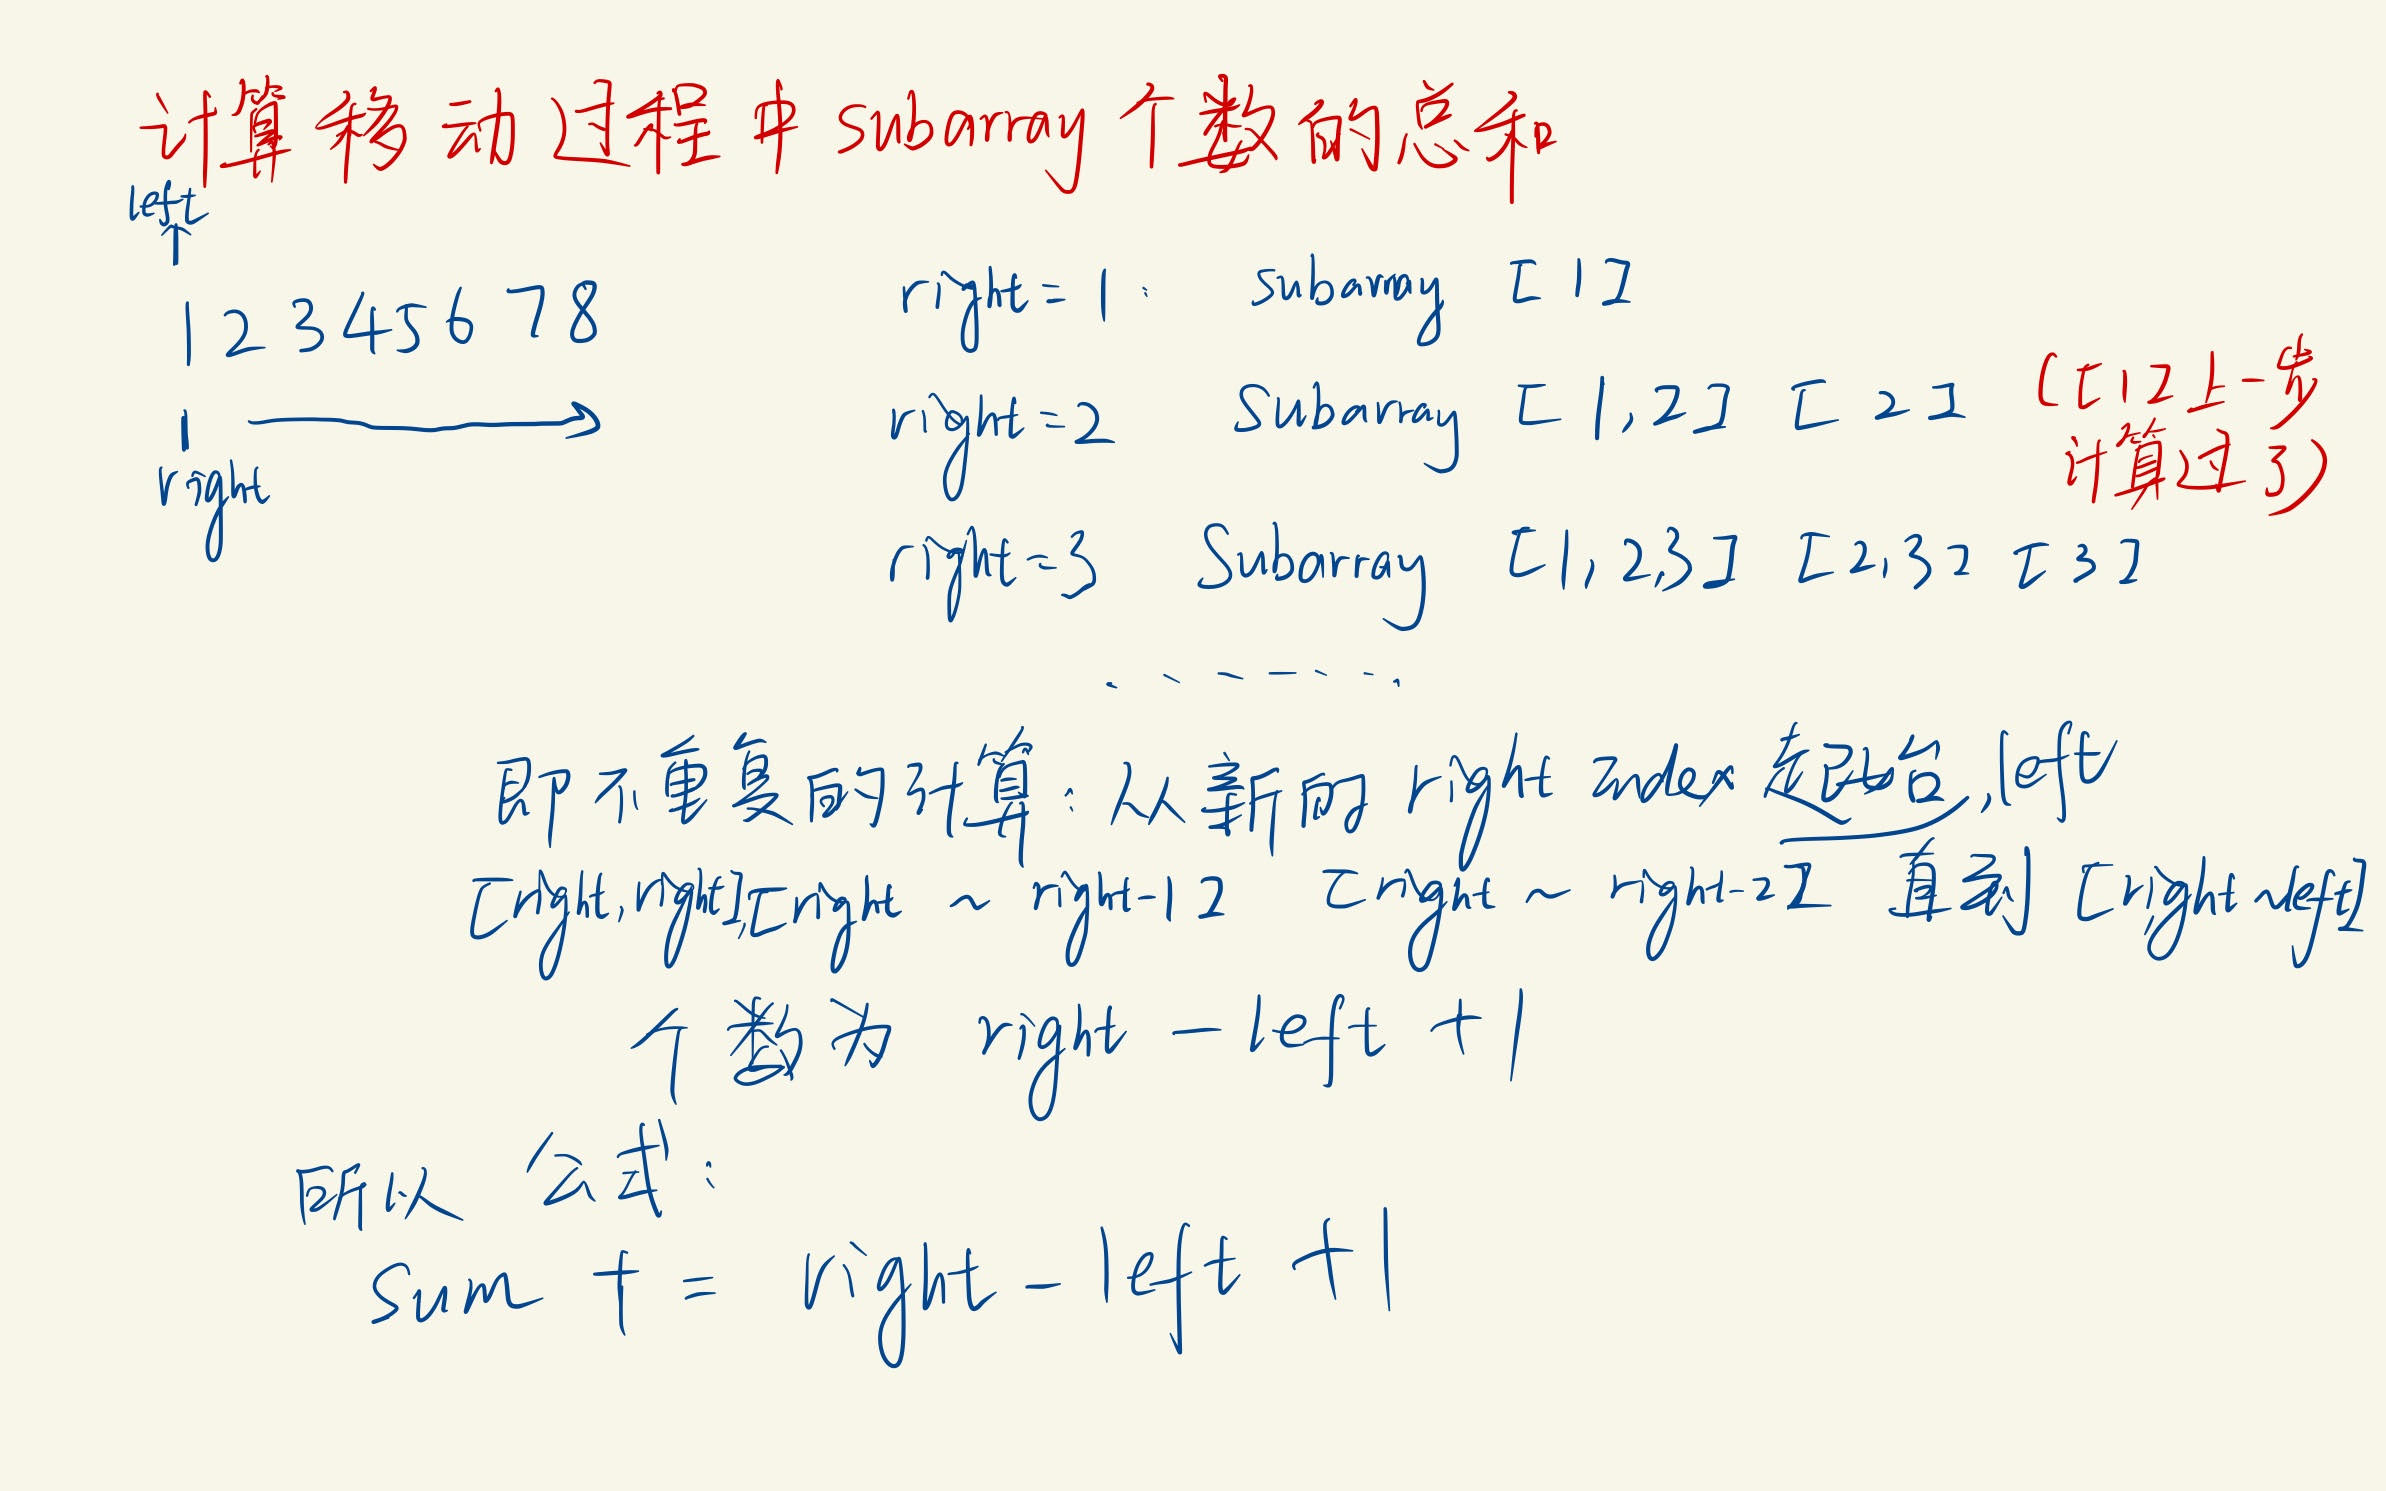 计算移动过程中subarray个数的总和
left
1 2 3 4 5 6 7 8
right
right = 1: subarray [1]
right = 2 Subarray [1,2] [2] ([1]上一步
计算过了)
right = 3 Subarray [1,2,3] [2,3] [3]
.......
即不重复的计算:从新的right index 起始,left
[right,right],[right ~ right-1] [right ~ right-2] 直到 [right~left]
个数为 right - left + 1
所以 公式:
Sum += right - left + 1